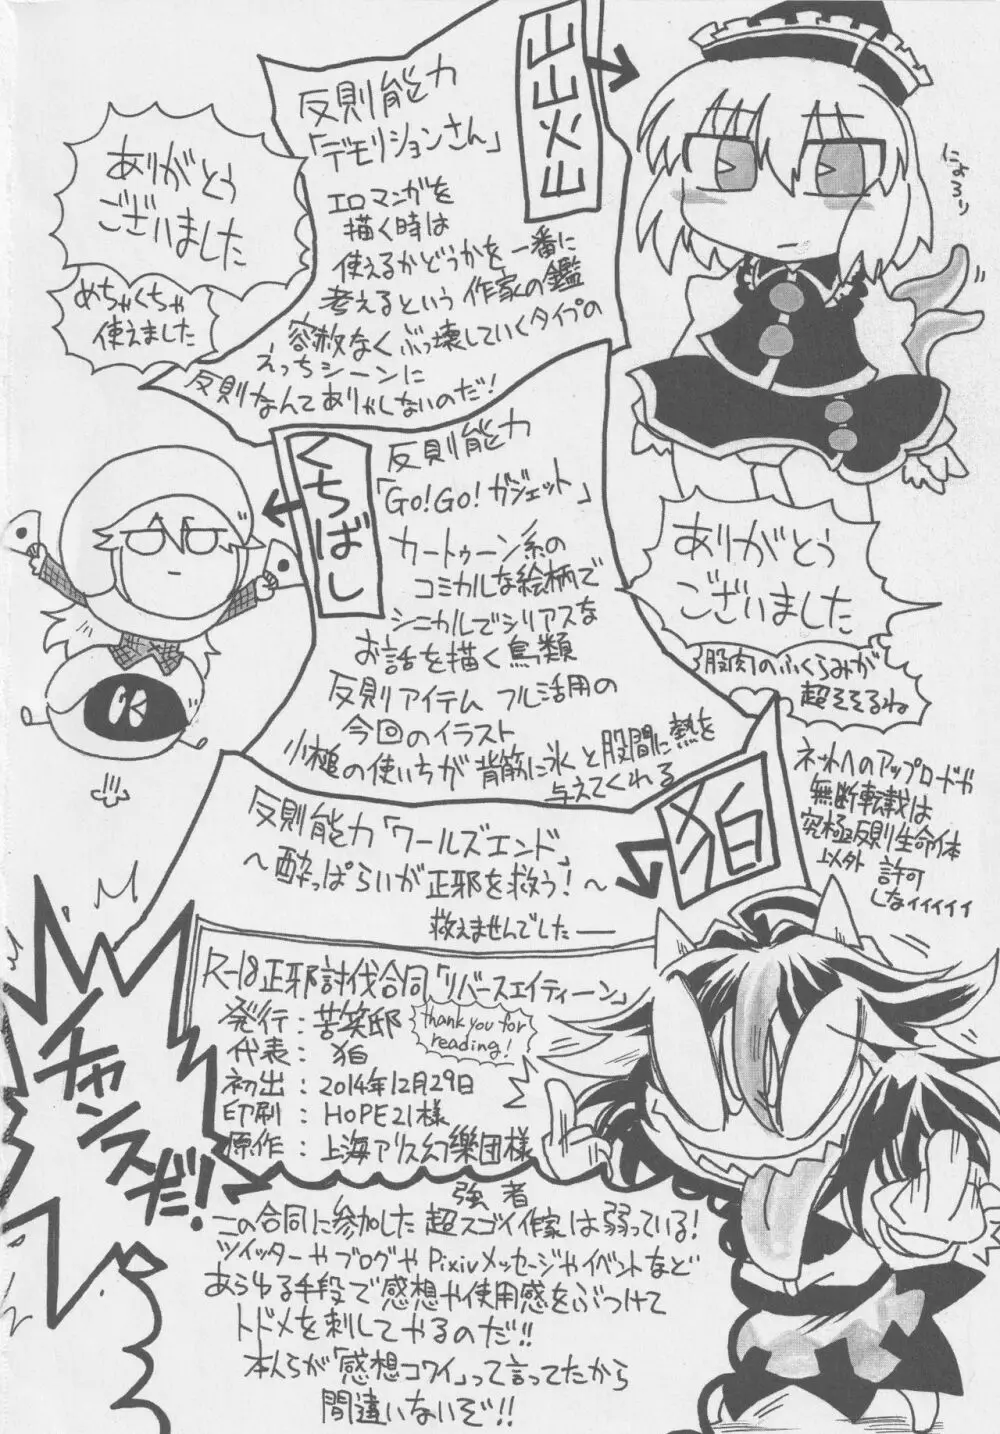 山山火山
反則能力
「デモリションさん」
エロマンガを
描く時は
使えるかどうかを一番に
考えるという作家の鑑
容赦なくぶっ壊していくタイプの
えっちシーンに
反則なんてありゃしないのだ!
ありがとう
ございました
めちゃくちゃ
使えました
にょろり
くちばし
反則能力
「Go!Go!ガジェット」
カートゥーン系の
コミカルな絵柄で
シニカルでシリアスな
お話を描く鳥類
反則アイテム フル活用の
今回のイラスト
小槌の使いちが背筋に氷と股間に熱を
与えてくれる
ありがとう
ございました
股肉のふくらみが
超そそるね
狛
反則能力「ワールズエンド」
～酔っぱらいが正邪を救う!～
救えませんでした――
ネットへのアップロードや
無断転載は
究極反則生命体
以外 許可
しなィィィィィ
R-18正邪討伐合同「リバースエイティーン」
発行:苦笑邸
代表:狛
初出:2014年12月29日
印刷:HOPE21様
原作:上海アリス幻樂団様
thank you for
reading!
チャンスだ!
強者
この合同に参加した超スゴイ作家は弱っている!
ツイッターやブログやPixivメッセージやイベントなど
あらゆる手段で感想や使用感をぶつけて
トドメを刺してやるのだ!!
本人らが「感想コワイ」って言ってたから
間違いないぞ!!